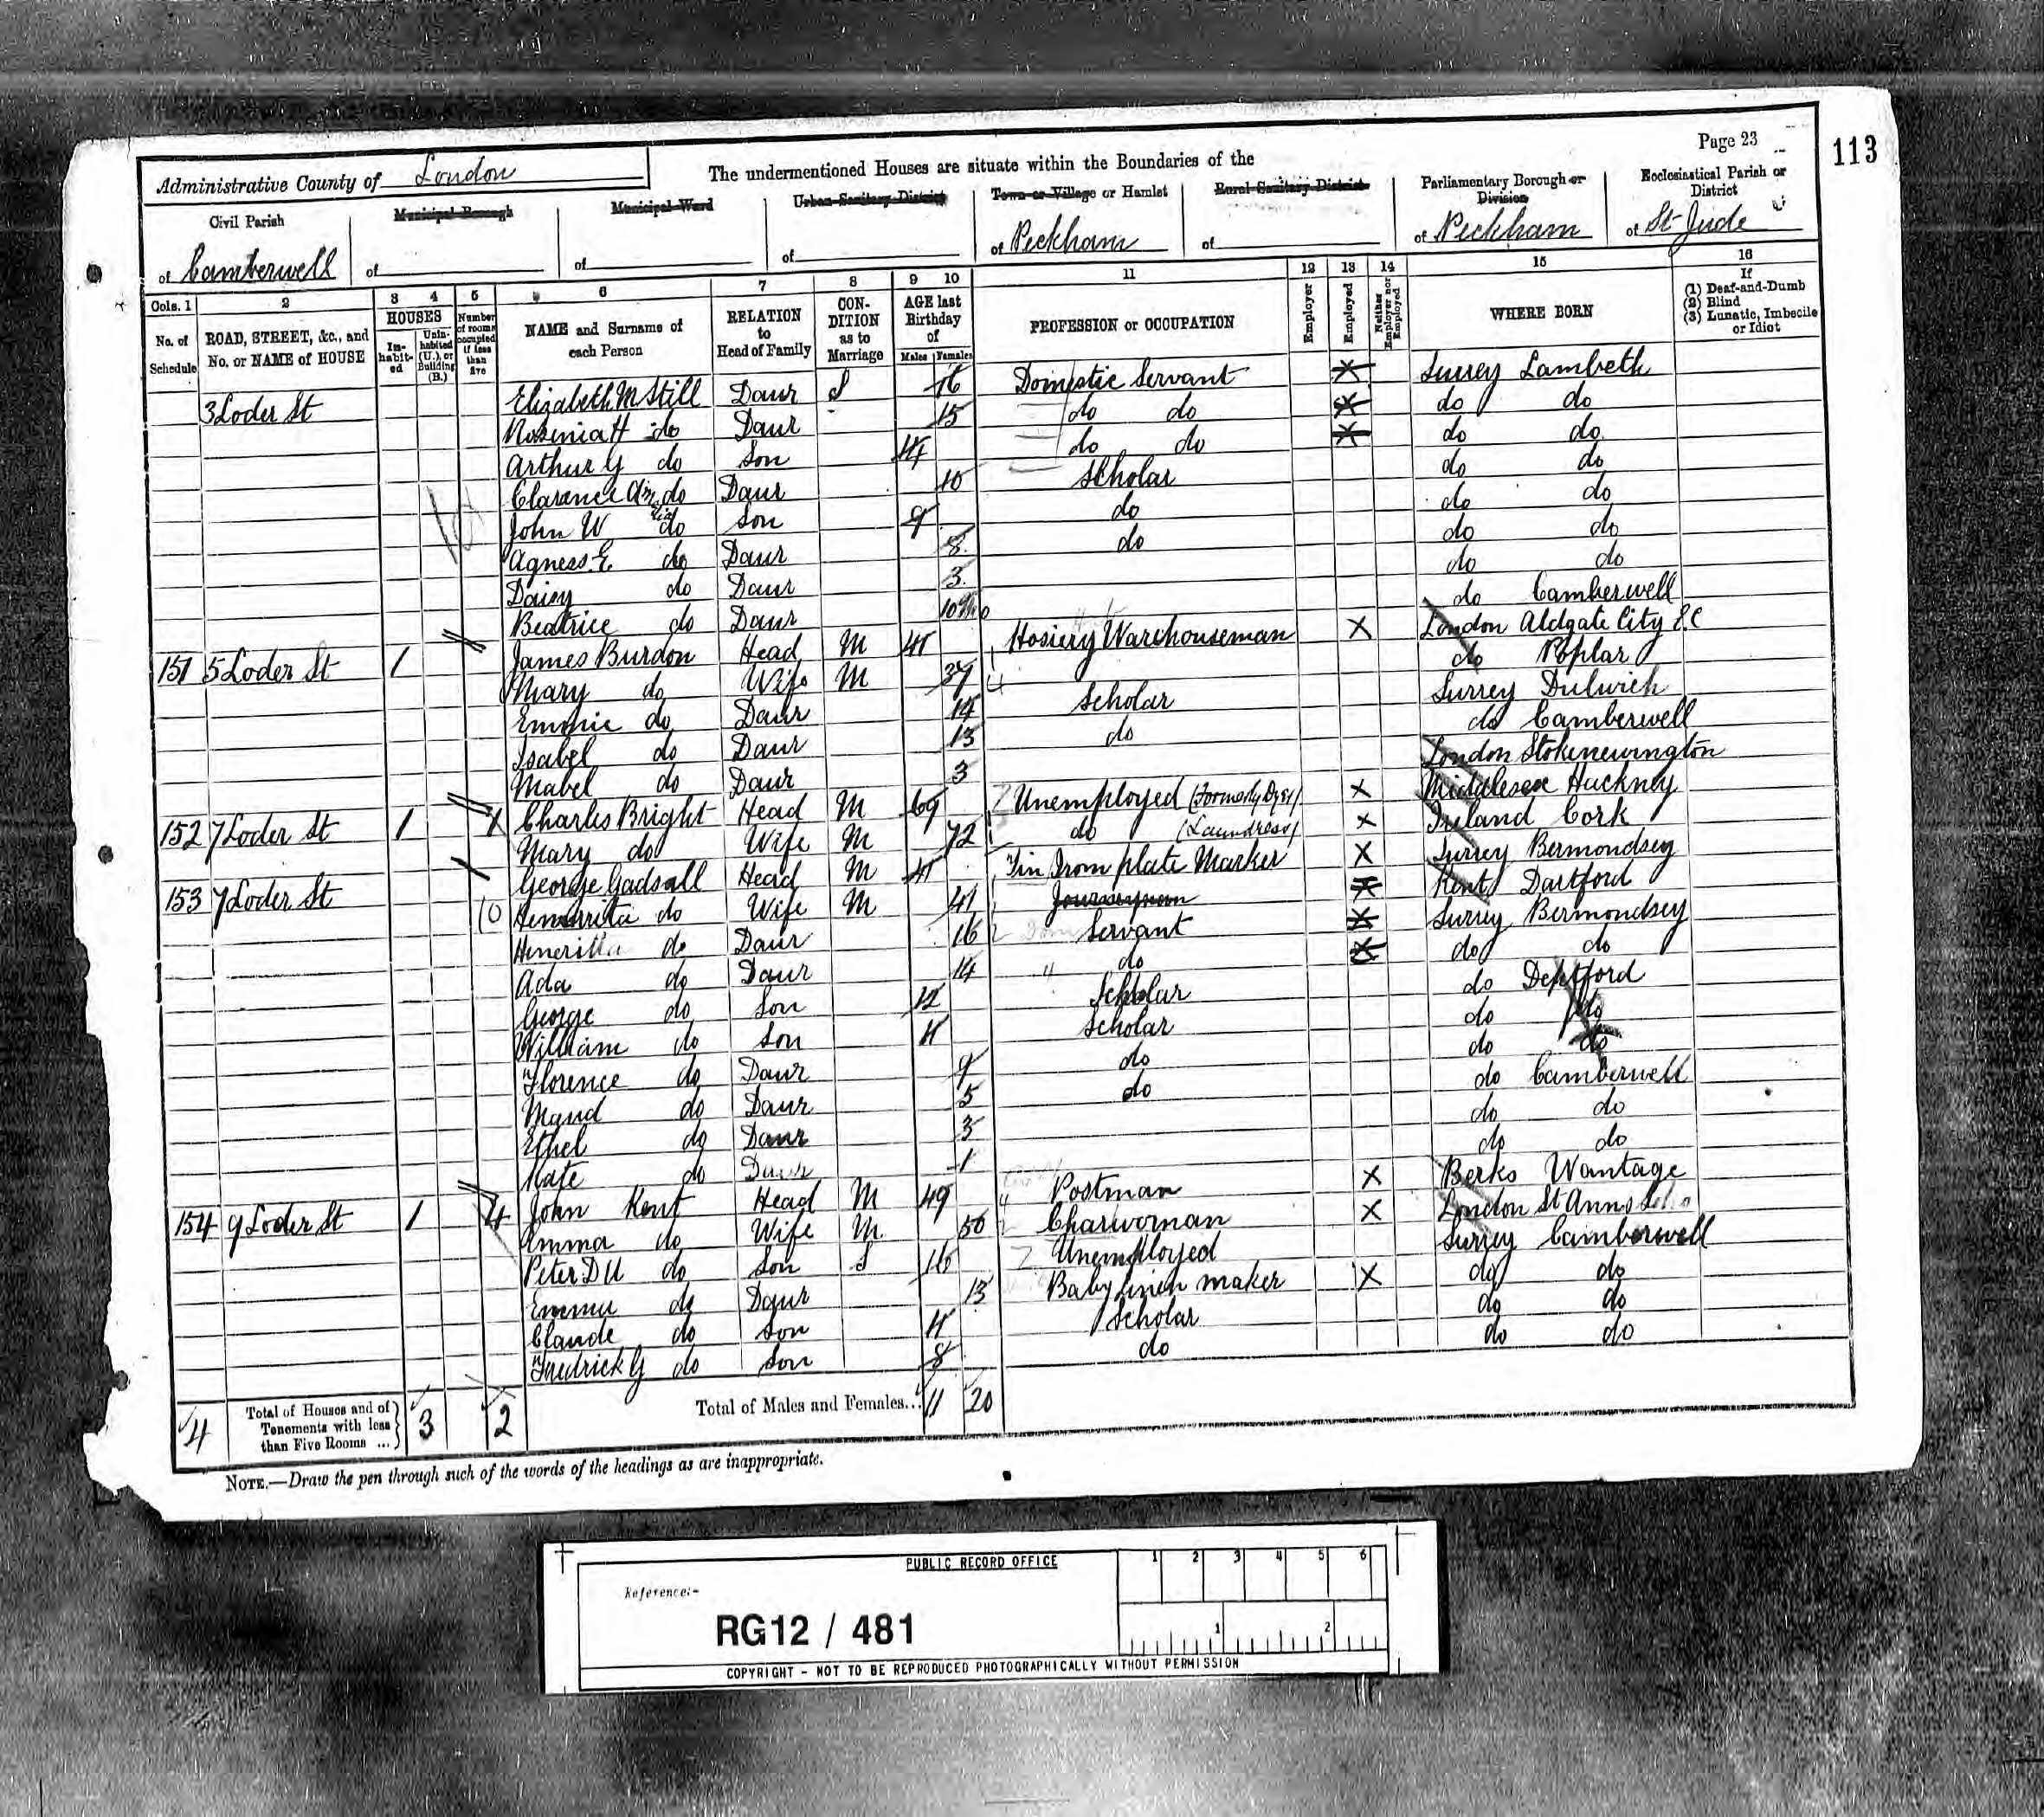 Page 23
113
Administrative County of London
The undermentioned Houses are situate within the Boundaries of the
Civil Parish of Camberwell
Municipal Borough of
Municipal Ward of
Urban Sanitary District of
Town or Village or Hamlet of Peckham
Rural Sanitary District of
Parliamentary Borough or Division of Peckham
Ecclesiastical Parish or District of St Jude
Cols. 1 2 3 4 5 6 7 8 9 10 11 12 13 14 15 16
No. of Schedule
ROAD, STREET, &c., and No. or NAME of HOUSE
HOUSES
In-habit-ed
Unin-habited (U.), or Building (B.)
Number of rooms occupied if less than five
NAME and Surname of each Person
RELATION to Head of Family
CON-DITION as to Marriage
AGE last Birthday of
Males Females
PROFESSION or OCCUPATION
Employer
Employed
Neither Employer nor Employed
WHERE BORN
If
(1) Deaf-and-Dumb
(2) Blind
(3) Lunatic, Imbecile or Idiot
3 Loder St Elizabeth M Still Daur S 16 Domestic Servant X Surrey Lambeth
H do Daur 15 do do X do do
Arthur G do Son 14 do do X do do
Clarence do Daur 10 Scholar do do
John W do Son 9 do do do
Agness E do Daur 8 do do do
Daisy do Daur 3 do do
Beatrice do Daur 10 Mo do Camberwell
151 5 Loder St 1 James Burdon Head M 41 Hosiery Warehouseman X London Aldgate City E.C
Mary do Wife M 37 do Poplar
Emmie do Daur 14 Scholar Surrey Dulwich
Isabel do Daur 13 do do Camberwell
Mabel do Daur 3 London Stokenewington
152 7 Loder St 1 Charles Bright Head M 69 Unemployed (Formerly Dyer) X Middlesex Hackney
Mary do Wife M 72 do (Laundress) X Ireland Cork
153 7 Loder St George Gadsall Head M 41 Tin Iron plate Marker X Surrey Bermondsey
Henerrita do Wife M 41 Journeyman X Kent Dartford
Heneritta do Daur 16 Servant X Surrey Bermondsey
Ada do Daur 14 do X do do
George do Son 12 Scholar do Deptford
William do Son 11 Scholar do do
Florence do Daur 9 do do do
Maud do Daur 5 do do Camberwell
Ethel do Daur 3 do do
Kate do Daur 1 do do
154 9 Loder St 1 4 John Kent Head M 49 Postman X Berks Wantage
Emma do Wife M 50 Charwoman X London St Anns
Peter D U do Son S 16 Unemployed Surrey Camberwell
Emma do Daur 13 Baby Linen maker X do do
Claude do Son 11 Scholar do do
Fredrick G do Son 8 do do do
4 Total of Houses and of Tenements with less than Five Rooms ... 3 2
Total of Males and Females... 11 20
NOTE.—Draw the pen through such of the words of the headings as are inappropriate.
PUBLIC RECORD OFFICE
1 2 3 4 5 6
Reference:-
RG12 / 481
1 2
COPYRIGHT - NOT TO BE REPRODUCED PHOTOGRAPHICALLY WITHOUT PERMISSION